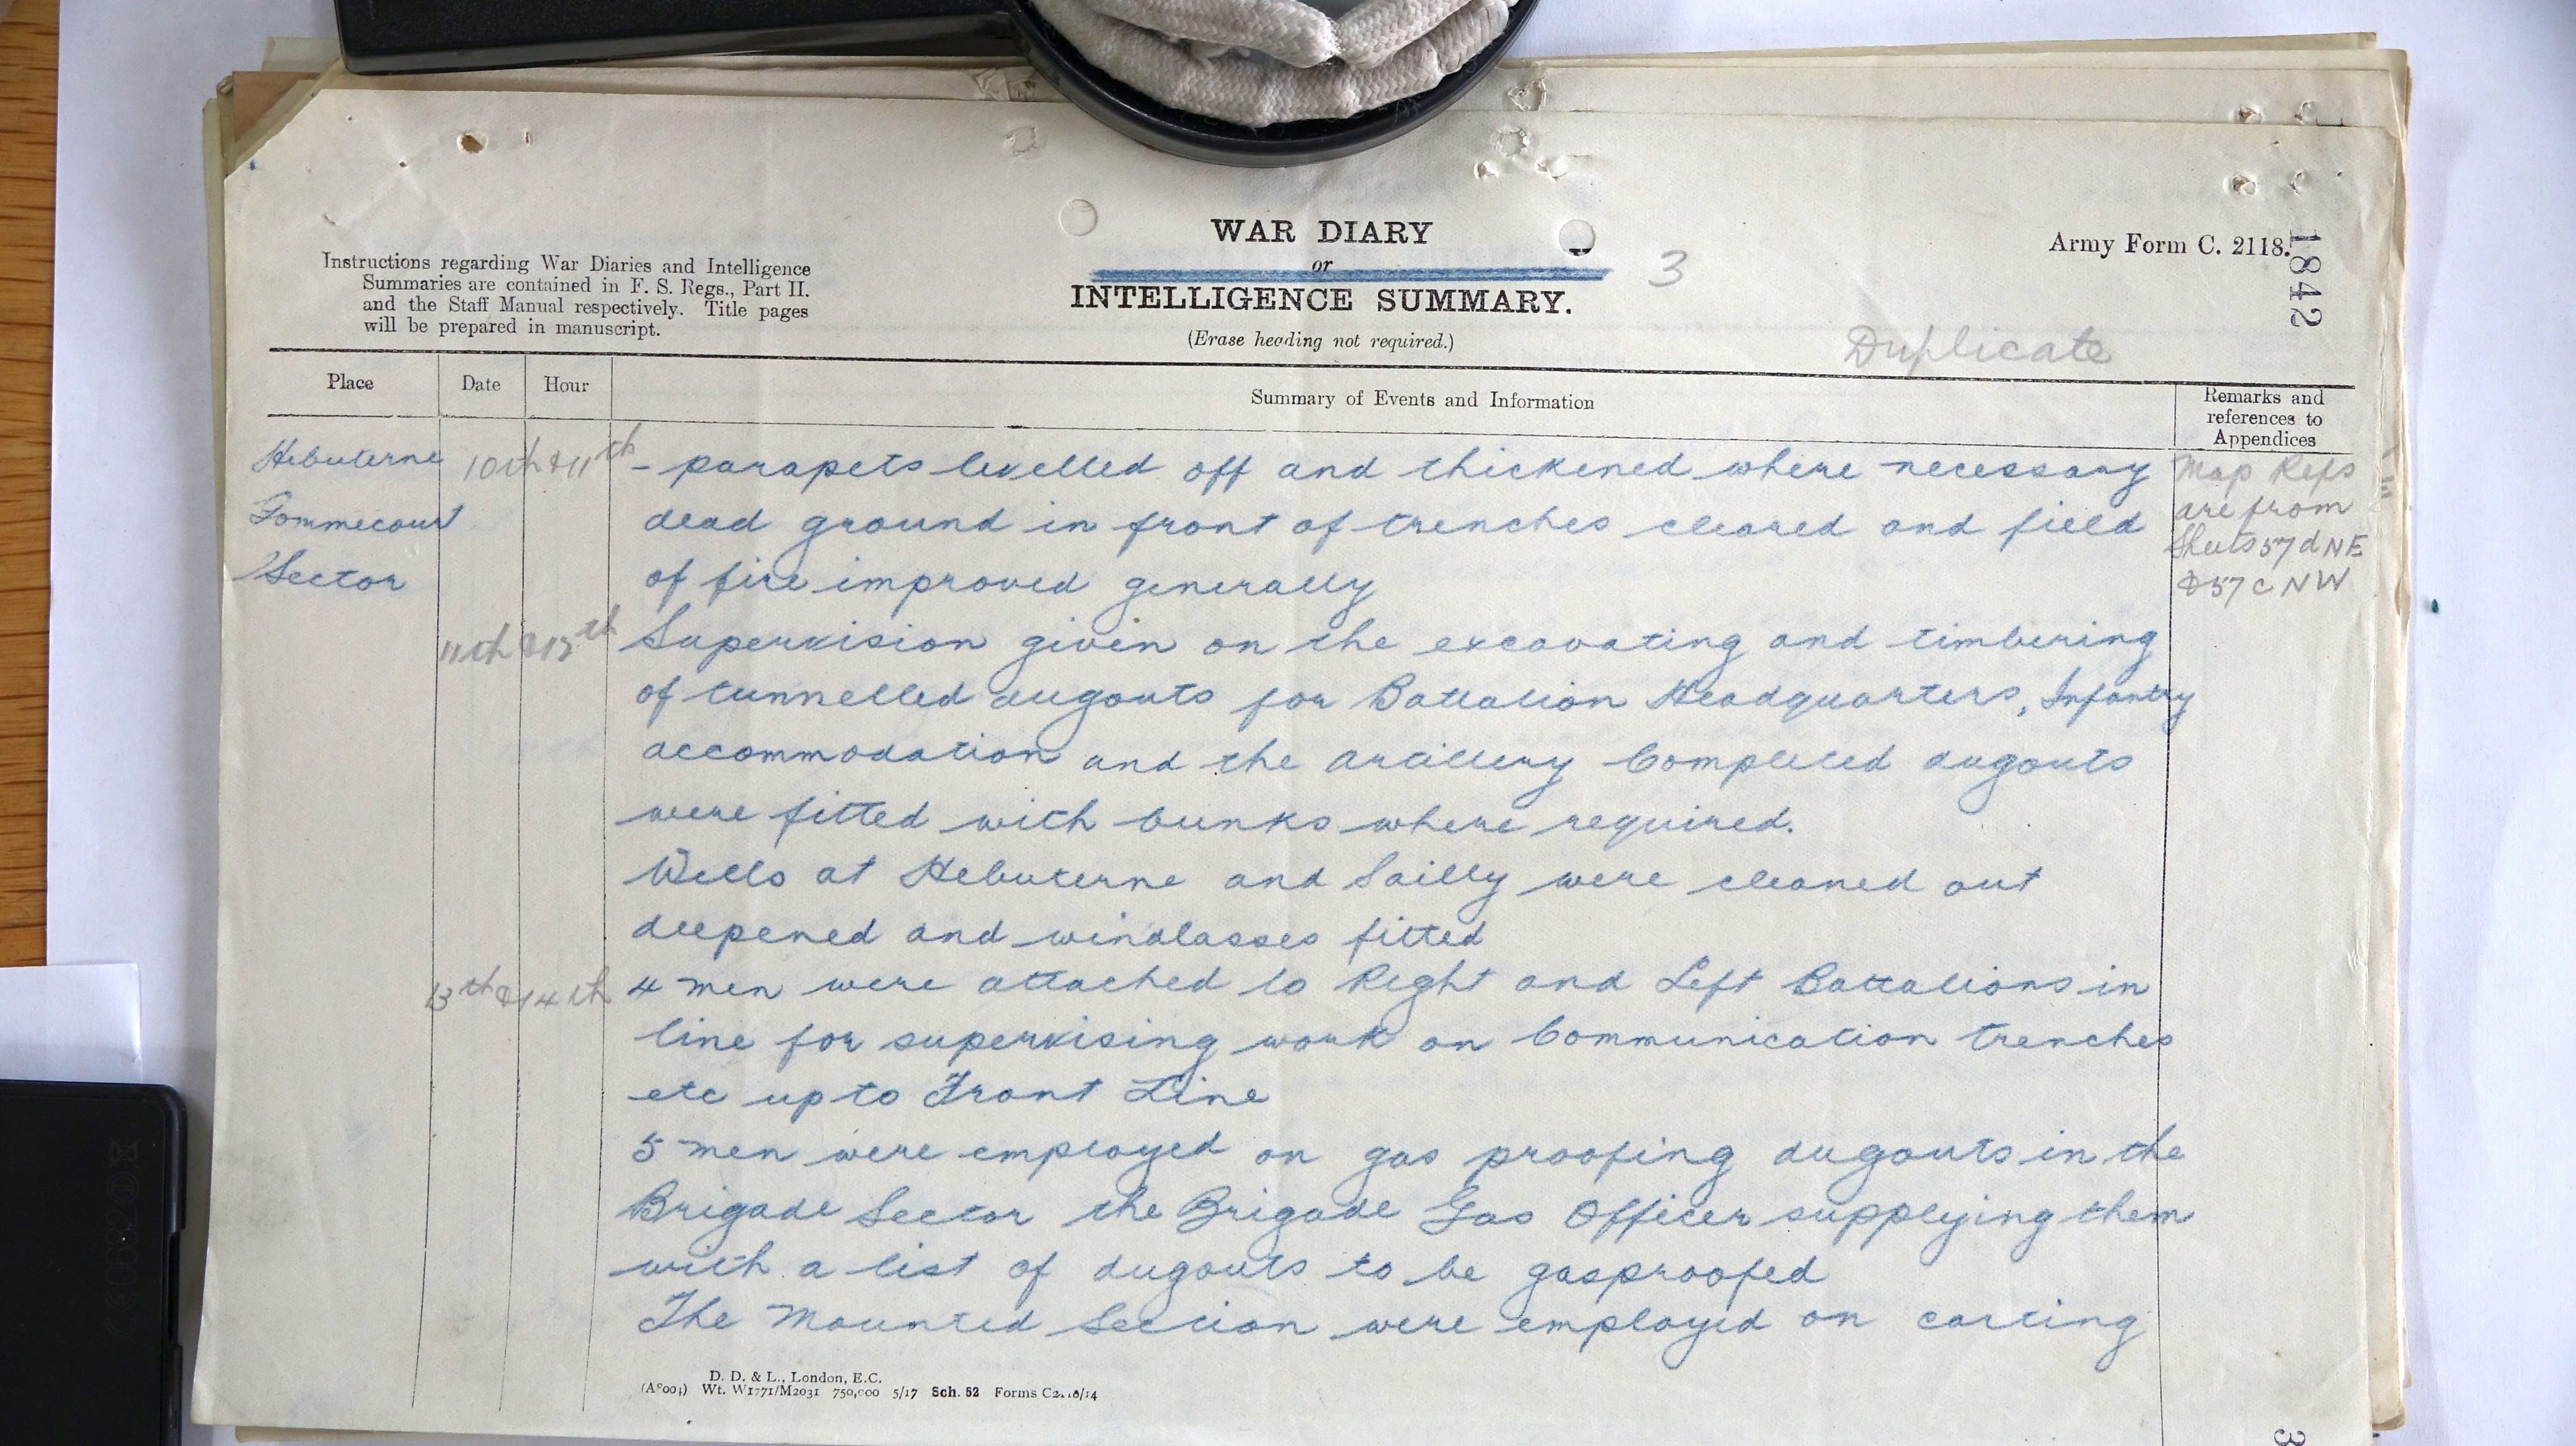 WAR DIARY
or
INTELLIGENCE SUMMARY.
(Erase heading not required.)
3
Army Form C. 2118.
1842
Instructions regarding War Diaries and Intelligence
Summaries are contained in F. S. Regs., Part II.
and the Staff Manual respectively. Title pages
will be prepared in manuscript.
Duplicate
Place
Date
Hour
Summary of Events and Information
Remarks and
references to
Appendices
Hebuterne
Gommecourt
Sector
10th & 11th
- parapets levelled off and thickened where necessary
dead ground in front of trenches cleared and field
of fire improved generally
Map Refs
are from
Sheets 57 d NE
& 57 c NW
11th & 13th
Supervision given on the excavating and timbering
of tunnelled dugouts for Battalion Headquarters, Infantry
accommodation and the Artillery Completed dugouts
were fitted with bunks where required.
Wells at Hebuterne and Sailly were cleaned out
deepened and windlasses fitted
13th & 14th
4 men were attached to Right and Left Battalions in
line for supervising work on Communication trenches
etc up to Front Line
5 men were employed on gas proofing dugouts in the
Brigade Sector the Brigade Gas Officer supplying them
with a list of dugouts to be gasproofed
The Mounted Section were employed on carting
D. D. & L., London, E.C.
Wt. W1771/M2031 750,000 5/17 Sch. 52 Forms
3